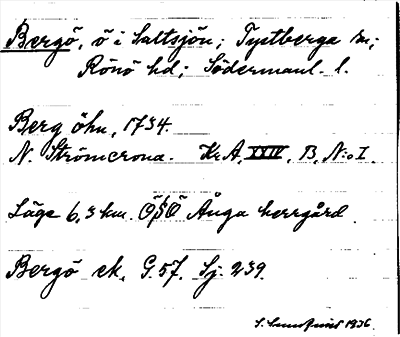 Bergö, ö i Saltsjön; Tystberga sn;
Rönö hd; Södermanl. l.
Berg öhn, 1734.
N. Strömcrona. Kr. A, XXIV, B, N:o I.
Läge 6,3 km. OSO Ånga herrgård.
Bergö ek. G. 57. Sj. 239.
S. Lundqvist 1936.